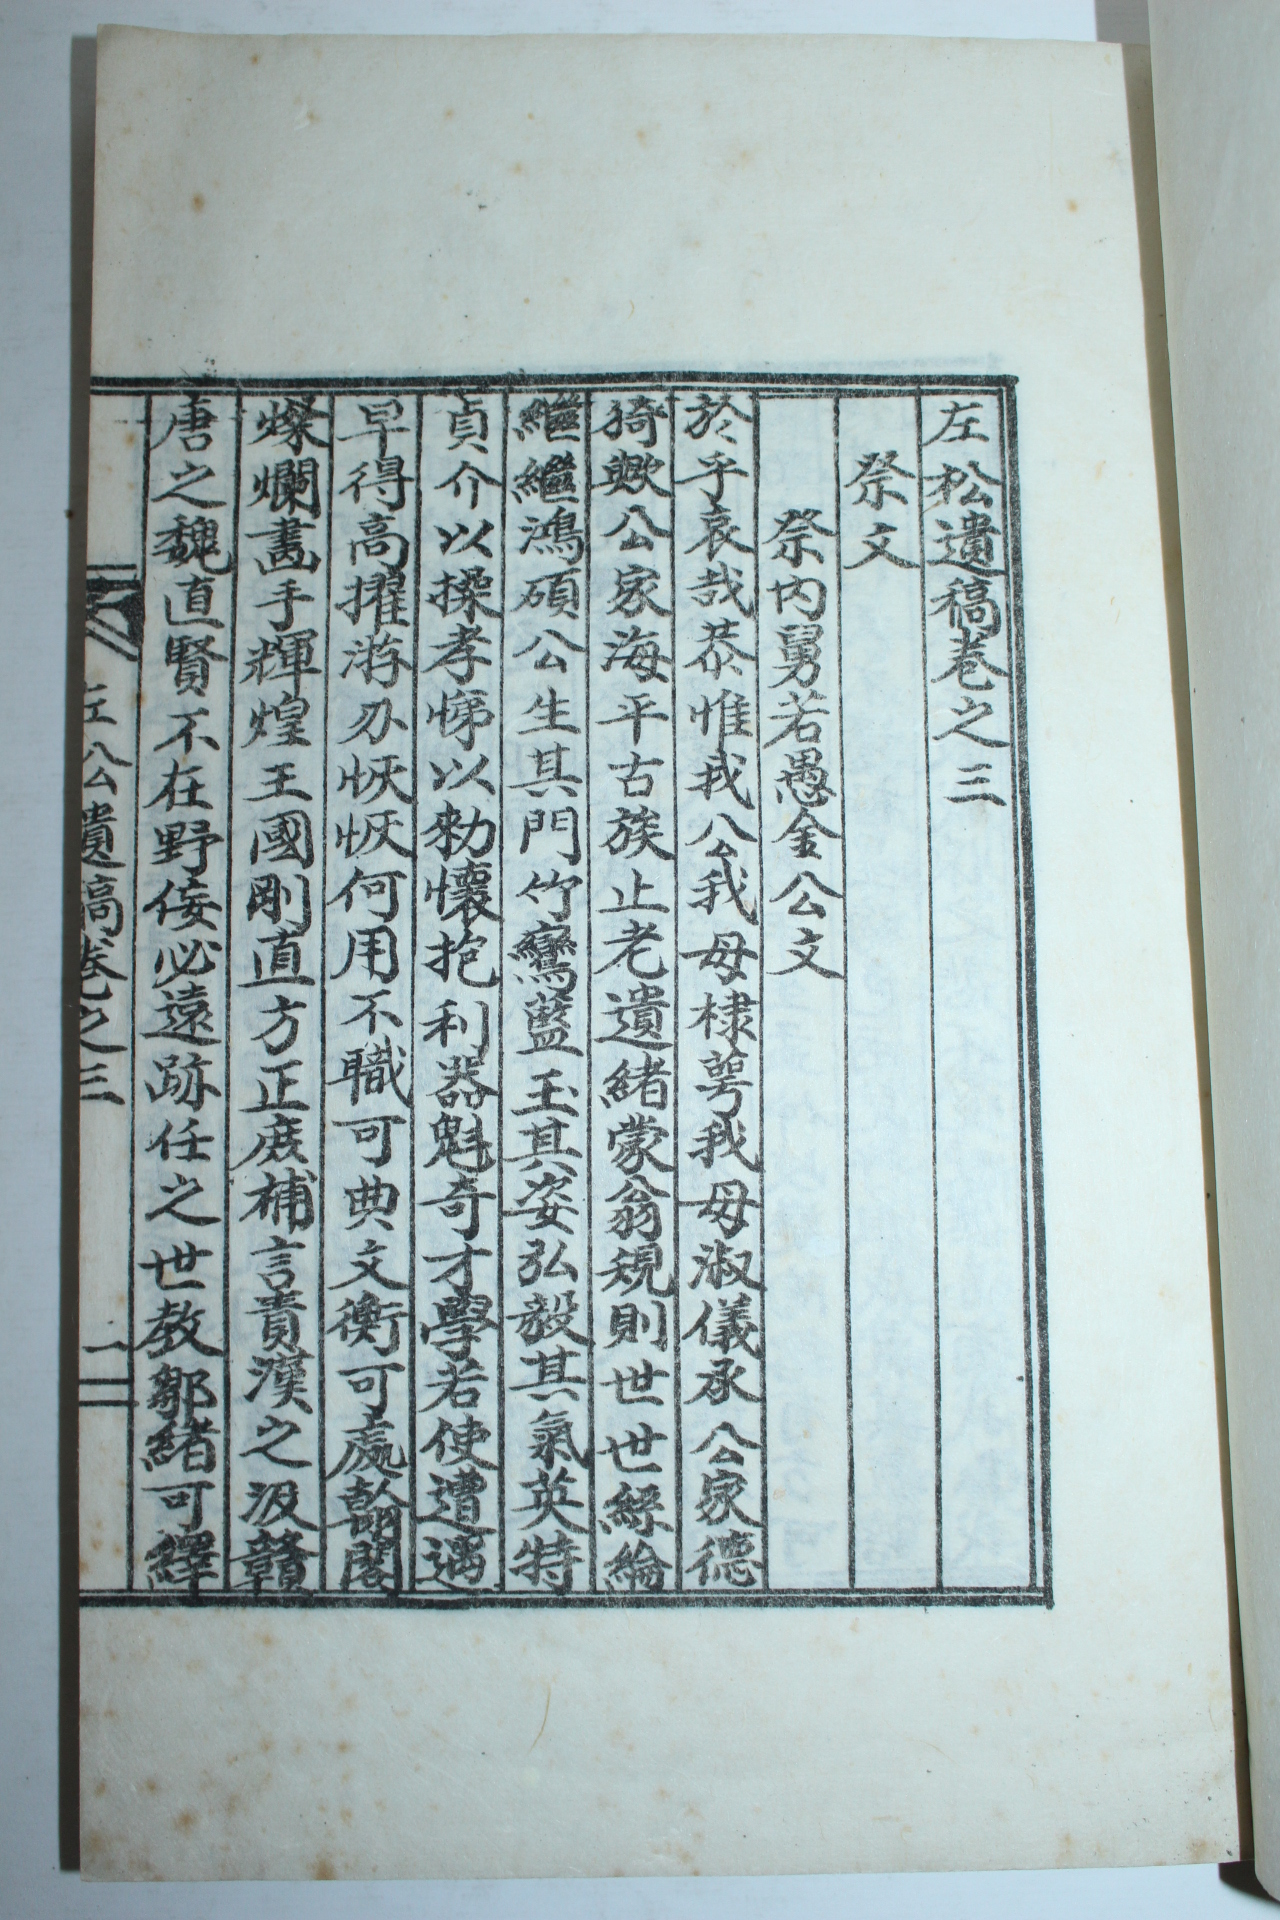 左松遺稿卷之三
祭文
祭內舅若愚金公文
於乎哀哉恭惟我公我母棣萼我母淑儀承公家德
猗歟公家海平古族止老遺緖蒙翁規則世世絲綸
繼繼鴻碩公生其門竹鸞藍玉其姿弘毅其氣英特
貞介以操孝悌以勑懷抱利器魁奇才學若使遭遇
早得高擢游刃恢恢何用不職可典文衡可處翰閣
燦爛畵手輝煌王國剛直方正庶補言責漢之汲贛
唐之魏直賢不在野侫必遠跡任之世敎鄒緖可繹
左公遺稿卷之三 一